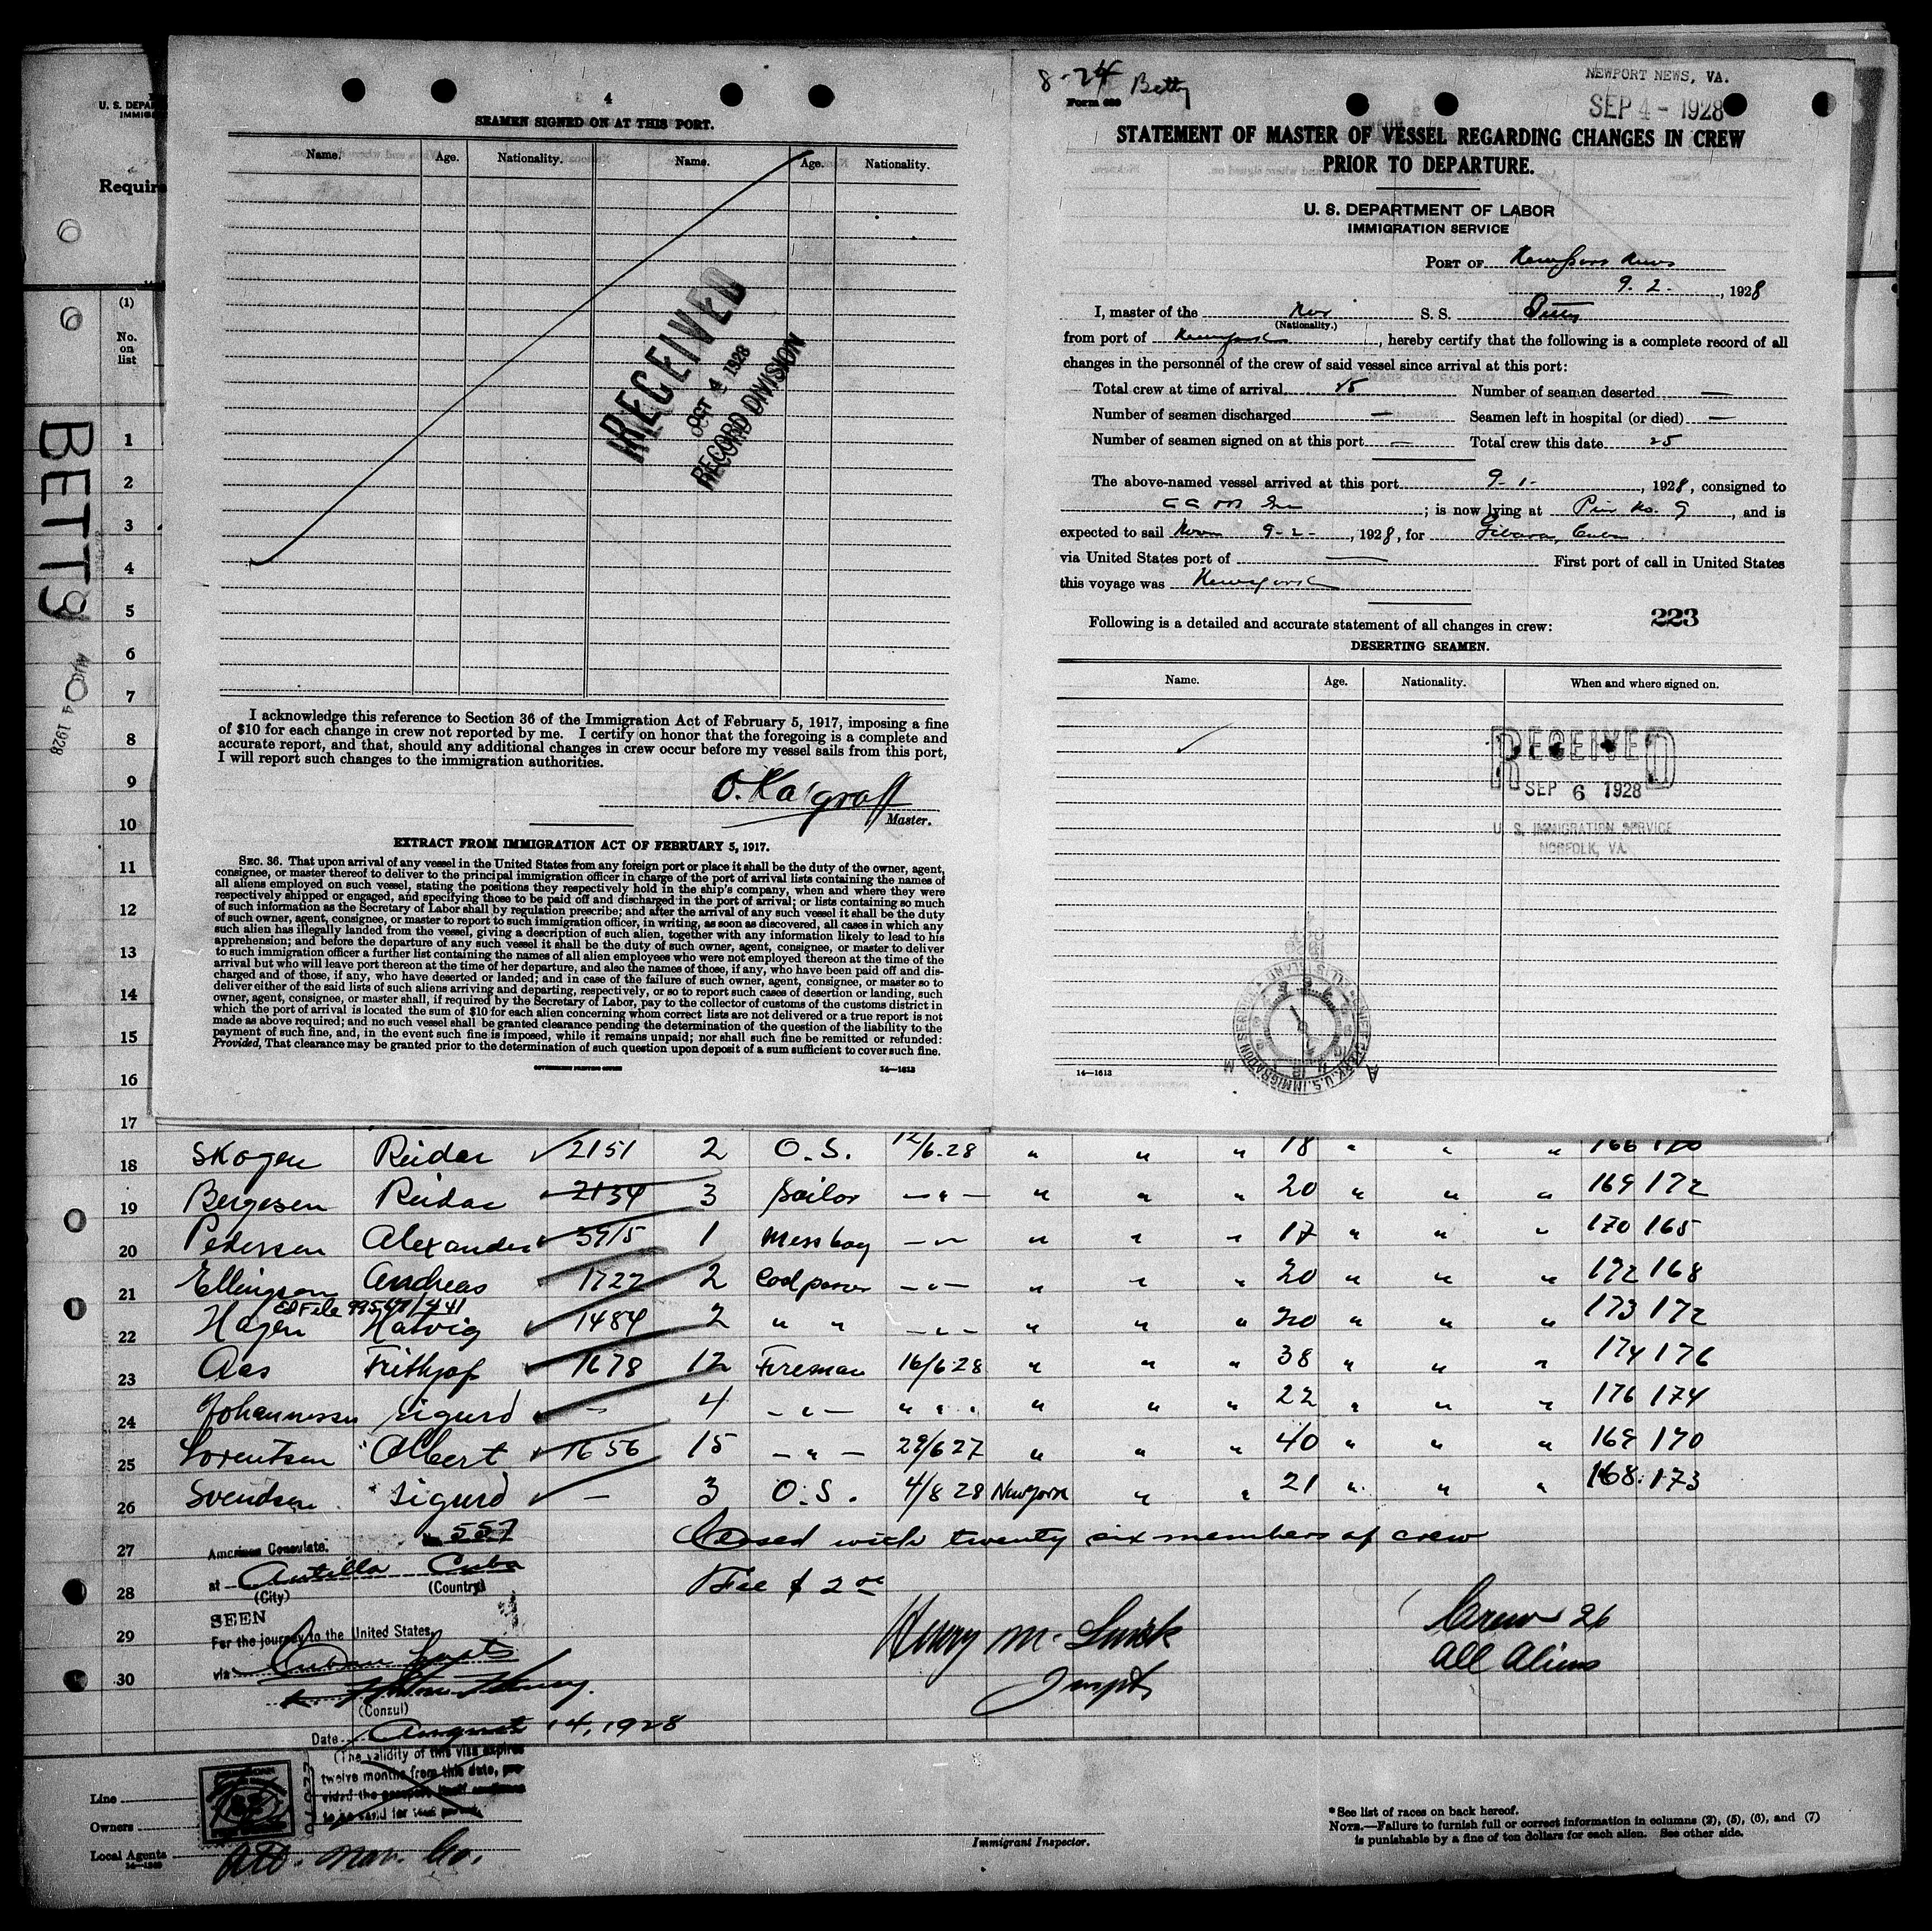 U. S. DEPA
IMMIG
Require
(1)
No.
on
list
BETTY
4 1928
4
SEAMEN SIGNED ON AT THIS PORT.
Name. Age. Nationality. Name. Age. Nationality.
RECEIVED
OCT 4 1928
RECORD DIVISION
I acknowledge this reference to Section 36 of the Immigration Act of February 5, 1917, imposing a fine
of $10 for each change in crew not reported by me. I certify on honor that the foregoing is a complete and
accurate report, and that, should any additional changes in crew occur before my vessel sails from this port,
I will report such changes to the immigration authorities.
Master.
EXTRACT FROM IMMIGRATION ACT OF FEBRUARY 5, 1917.
SEC. 36. That upon arrival of any vessel in the United States from any foreign port or place it shall be the duty of the owner, agent,
consignee, or master thereof to deliver to the principal immigration officer in charge of the port of arrival lists containing the names of
all aliens employed on such vessel, stating the positions they respectively hold in the ship's company, when and where they were
respectively shipped or engaged, and specifying those to be paid off and discharged in the port of arrival; or lists containing so much
of such information as the Secretary of Labor shall by regulation prescribe; and after the arrival of any such vessel it shall be the duty
of such owner, agent, consignee, or master to report to such immigration officer, in writing, as soon as discovered, all cases in which any
such alien has illegally landed from the vessel, giving a description of such alien, together with any information likely to lead to his
apprehension; and before the departure of any such vessel it shall be the duty of such owner, agent, consignee, or master to deliver
to such immigration officer a further list containing the names of all alien employees who were not employed thereon at the time of the
arrival but who will leave port thereon at the time of her departure, and also the names of those, if any, who have been paid off and dis-
charged and of those, if any, who have deserted or landed; and in case of the failure of such owner, agent, consignee, or master so to
deliver either of the said lists of such aliens arriving and departing, respectively, or so to report such cases of desertion or landing, such
owner, agent, consignee, or master shall, if required by the Secretary of Labor, pay to the collector of customs of the customs district in
which the port of arrival is located the sum of $10 for each alien concerning whom correct lists are not delivered or a true report is not
made as above required; and no such vessel shall be granted clearance pending the determination of the question of the liability to the
payment of such fine, and, in the event such fine is imposed, while it remains unpaid; nor shall such fine be remitted or refunded:
Provided, That clearance may be granted prior to the determination of such question upon deposit of a sum sufficient to cover such fine.
GOVERNMENT PRINTING OFFICE 14—1613
8-24 Betty
NEWPORT NEWS, VA.
SEP 4 - 1928
Form 689
STATEMENT OF MASTER OF VESSEL REGARDING CHANGES IN CREW
PRIOR TO DEPARTURE.
U. S. DEPARTMENT OF LABOR
IMMIGRATION SERVICE
PORT OF Newport News
9. 2. , 1928
I, master of the Nor S. S. Betty
(Nationality.)
from port of Newyork , hereby certify that the following is a complete record of all
changes in the personnel of the crew of said vessel since arrival at this port:
Total crew at time of arrival 25 Number of seamen deserted —
Number of seamen discharged — Seamen left in hospital (or died) —
Number of seamen signed on at this port — Total crew this date 25
The above-named vessel arrived at this port 9-1- , 1928, consigned to
; is now lying at Pier No. 9 , and is
expected to sail Noon 9-2- , 1928, for Gibara, Cuba.
via United States port of — First port of call in United States
this voyage was Newyork
223
Following is a detailed and accurate statement of all changes in crew:
DESERTING SEAMEN.
Name. Age. Nationality. When and where signed on.
RECEIVED
SEP 6 1928
U. S. IMMIGRATION SERVICE
NORFOLK, VA.
14—1613
1
2
3
4
5
6
7
8
9
10
11
12
13
14
15
16
17
18 Skogen Reidar 2151 2 O.S. 12/6-28 " " " 18 " " " 166 170
19 Bergesen Reidar 2134 3 Sailor —"— " " " 20 " " " 169 172
20 Pedersen Alexander 3915 1 Messboy —"— " " " 17 " " " 170 165
21 Ellingsen Andreas 1722 2 Coalpasser —"— " " " 20 " " " 172 168
22 Hagen Halvig 1484 2 " " —"— " " " 20 " " " 173 172
23 Aas Frithjof 1678 12 Fireman 16/6-28 " " " 38 " " " 174 176
24 Johannessen Sigurd — 4 —"— " " " " " " 22 " " " 176 174
25 Sorentsen Albert 1656 15 —"— 29/6 27 " " " 40 " " " 169 170
26 Svendsen Sigurd — 3 O.S. 4/8 28 Newyork " " 21 " " " 168 173
27
28
29
30
No. 557
American Consulate.
at Antilla Cuba
(City) (Country)
SEEN
For the journey to the United States
via Cuban ports
(Consul)
Date August 14, 1928
(The validity of this visa expires
twelve months from this date, pro-
vided the passport itself continues
to be valid for that period.
Closed with twenty six members of crew
Fee $ 2 00
Crew 26
All Aliens
Line
Owners
Local Agents
Immigrant Inspector.
* See list of races on back hereof.
NOTE.—Failure to furnish full or correct information in columns (2), (5), (6), and (7)
is punishable by a fine of ten dollars for each alien. See other side.